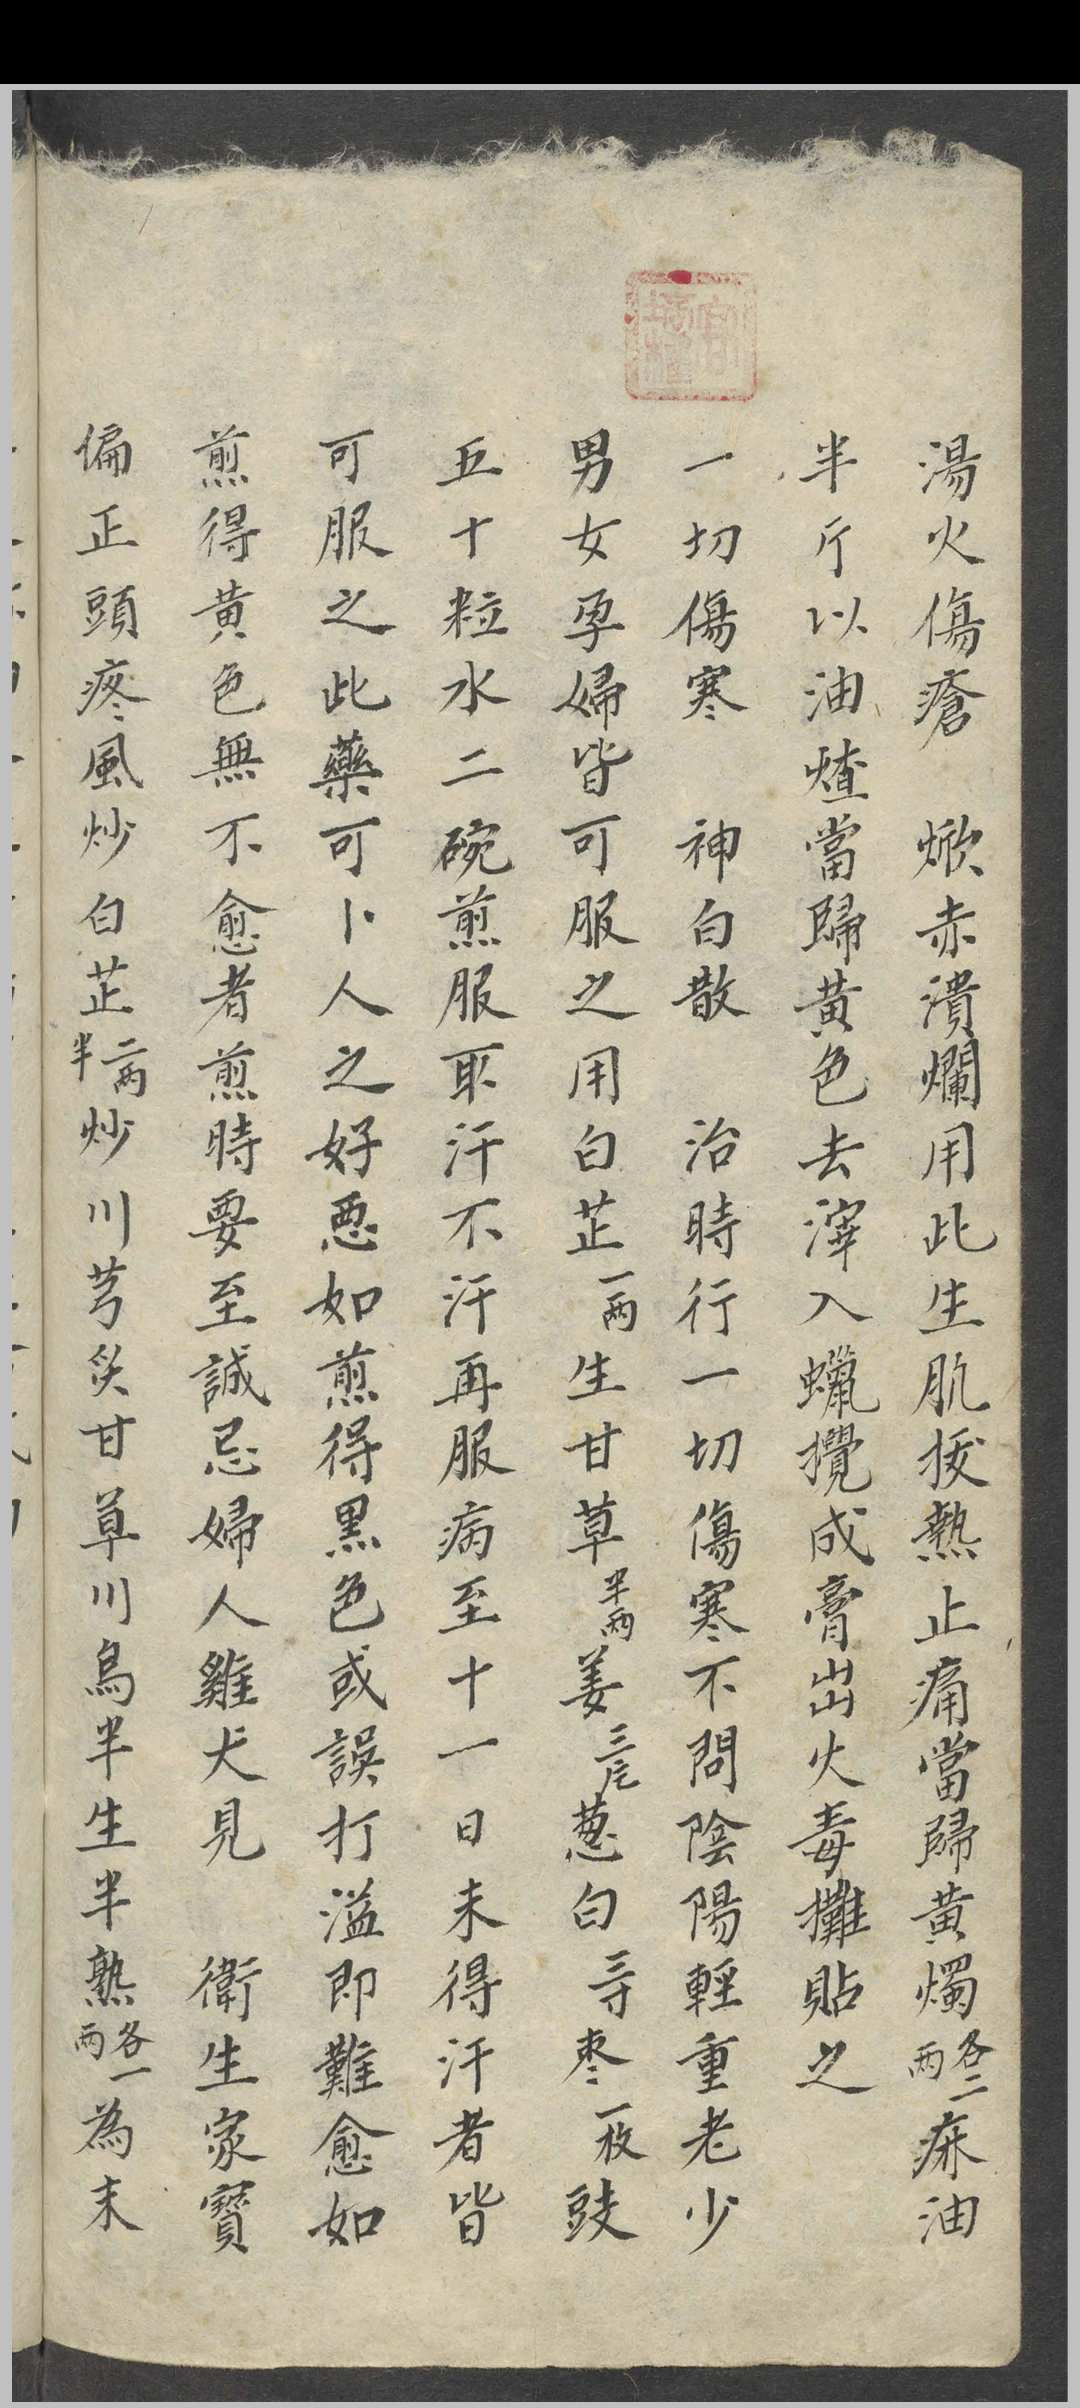 湯火傷瘡　焮赤潰爛用此生肌拔熱止痛當歸黃燭各二兩麻油
半斤以油煠當歸黃色去滓入蠟攪成膏出火毒攤貼之
一切傷寒　神白散　治時行一切傷寒不問陰陽輕重老少
男女孕婦皆可服之用白芷一兩生甘草半兩姜三片葱白三寸棗一枚豉
五十粒水二碗煎服取汗不汗再服病至十一日未得汗者皆
可服之此藥可卜人之好惡如煎得黑色或誤打溢即難愈如
煎得黃色無不愈者煎時要至誠忌婦人雞犬見　衛生家寶
偏正頭疼風炒白芷二兩半炒川芎炙甘草川烏半生半熟各一兩為末